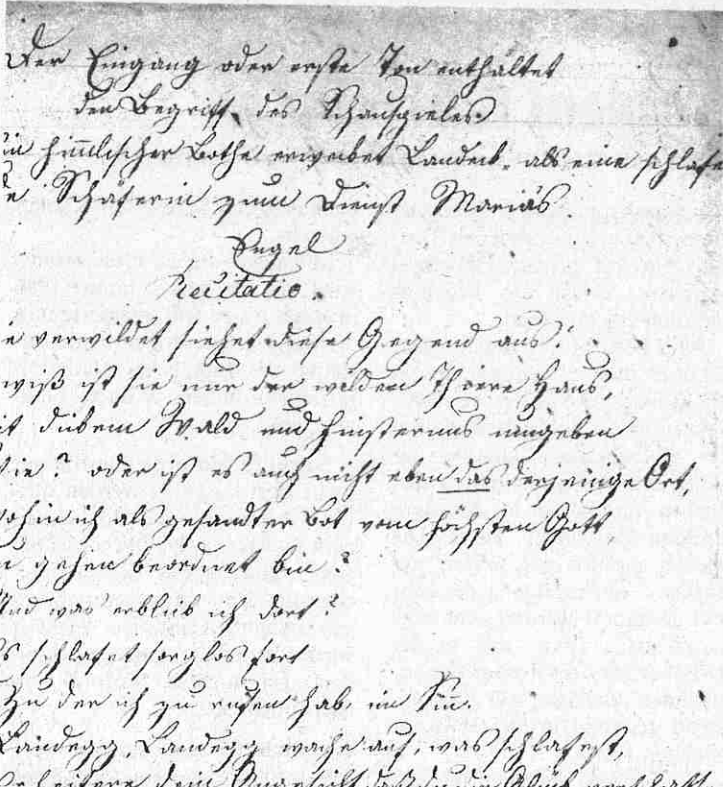 Der Eingang oder erste Ton enthaltet
den Begriff des Schauspieles
in himlischer Bothe erwecket Landeck als eine schlafe
e Schäferin zum Dienst Mariäs.
Engel
Recitatio.
ie verwildet siehet diese Gegend aus!
wiß ist sie nur der wilden Thiere Haus,
it dickem Wald und Finsternus umgeben
Wie? oder ist es auch nicht eben das derjenige Ort,
wohin ich als gesandter Bot vom höchsten Gott
zu gehen beordnet bin?
Und was erblick ich dort?
Es schlafet sorglos fort
Zu der ich zu rufen hab im Sin.
Landegg, Landegg wache auf, was schlafest,
dein Angesicht daß du die Glück